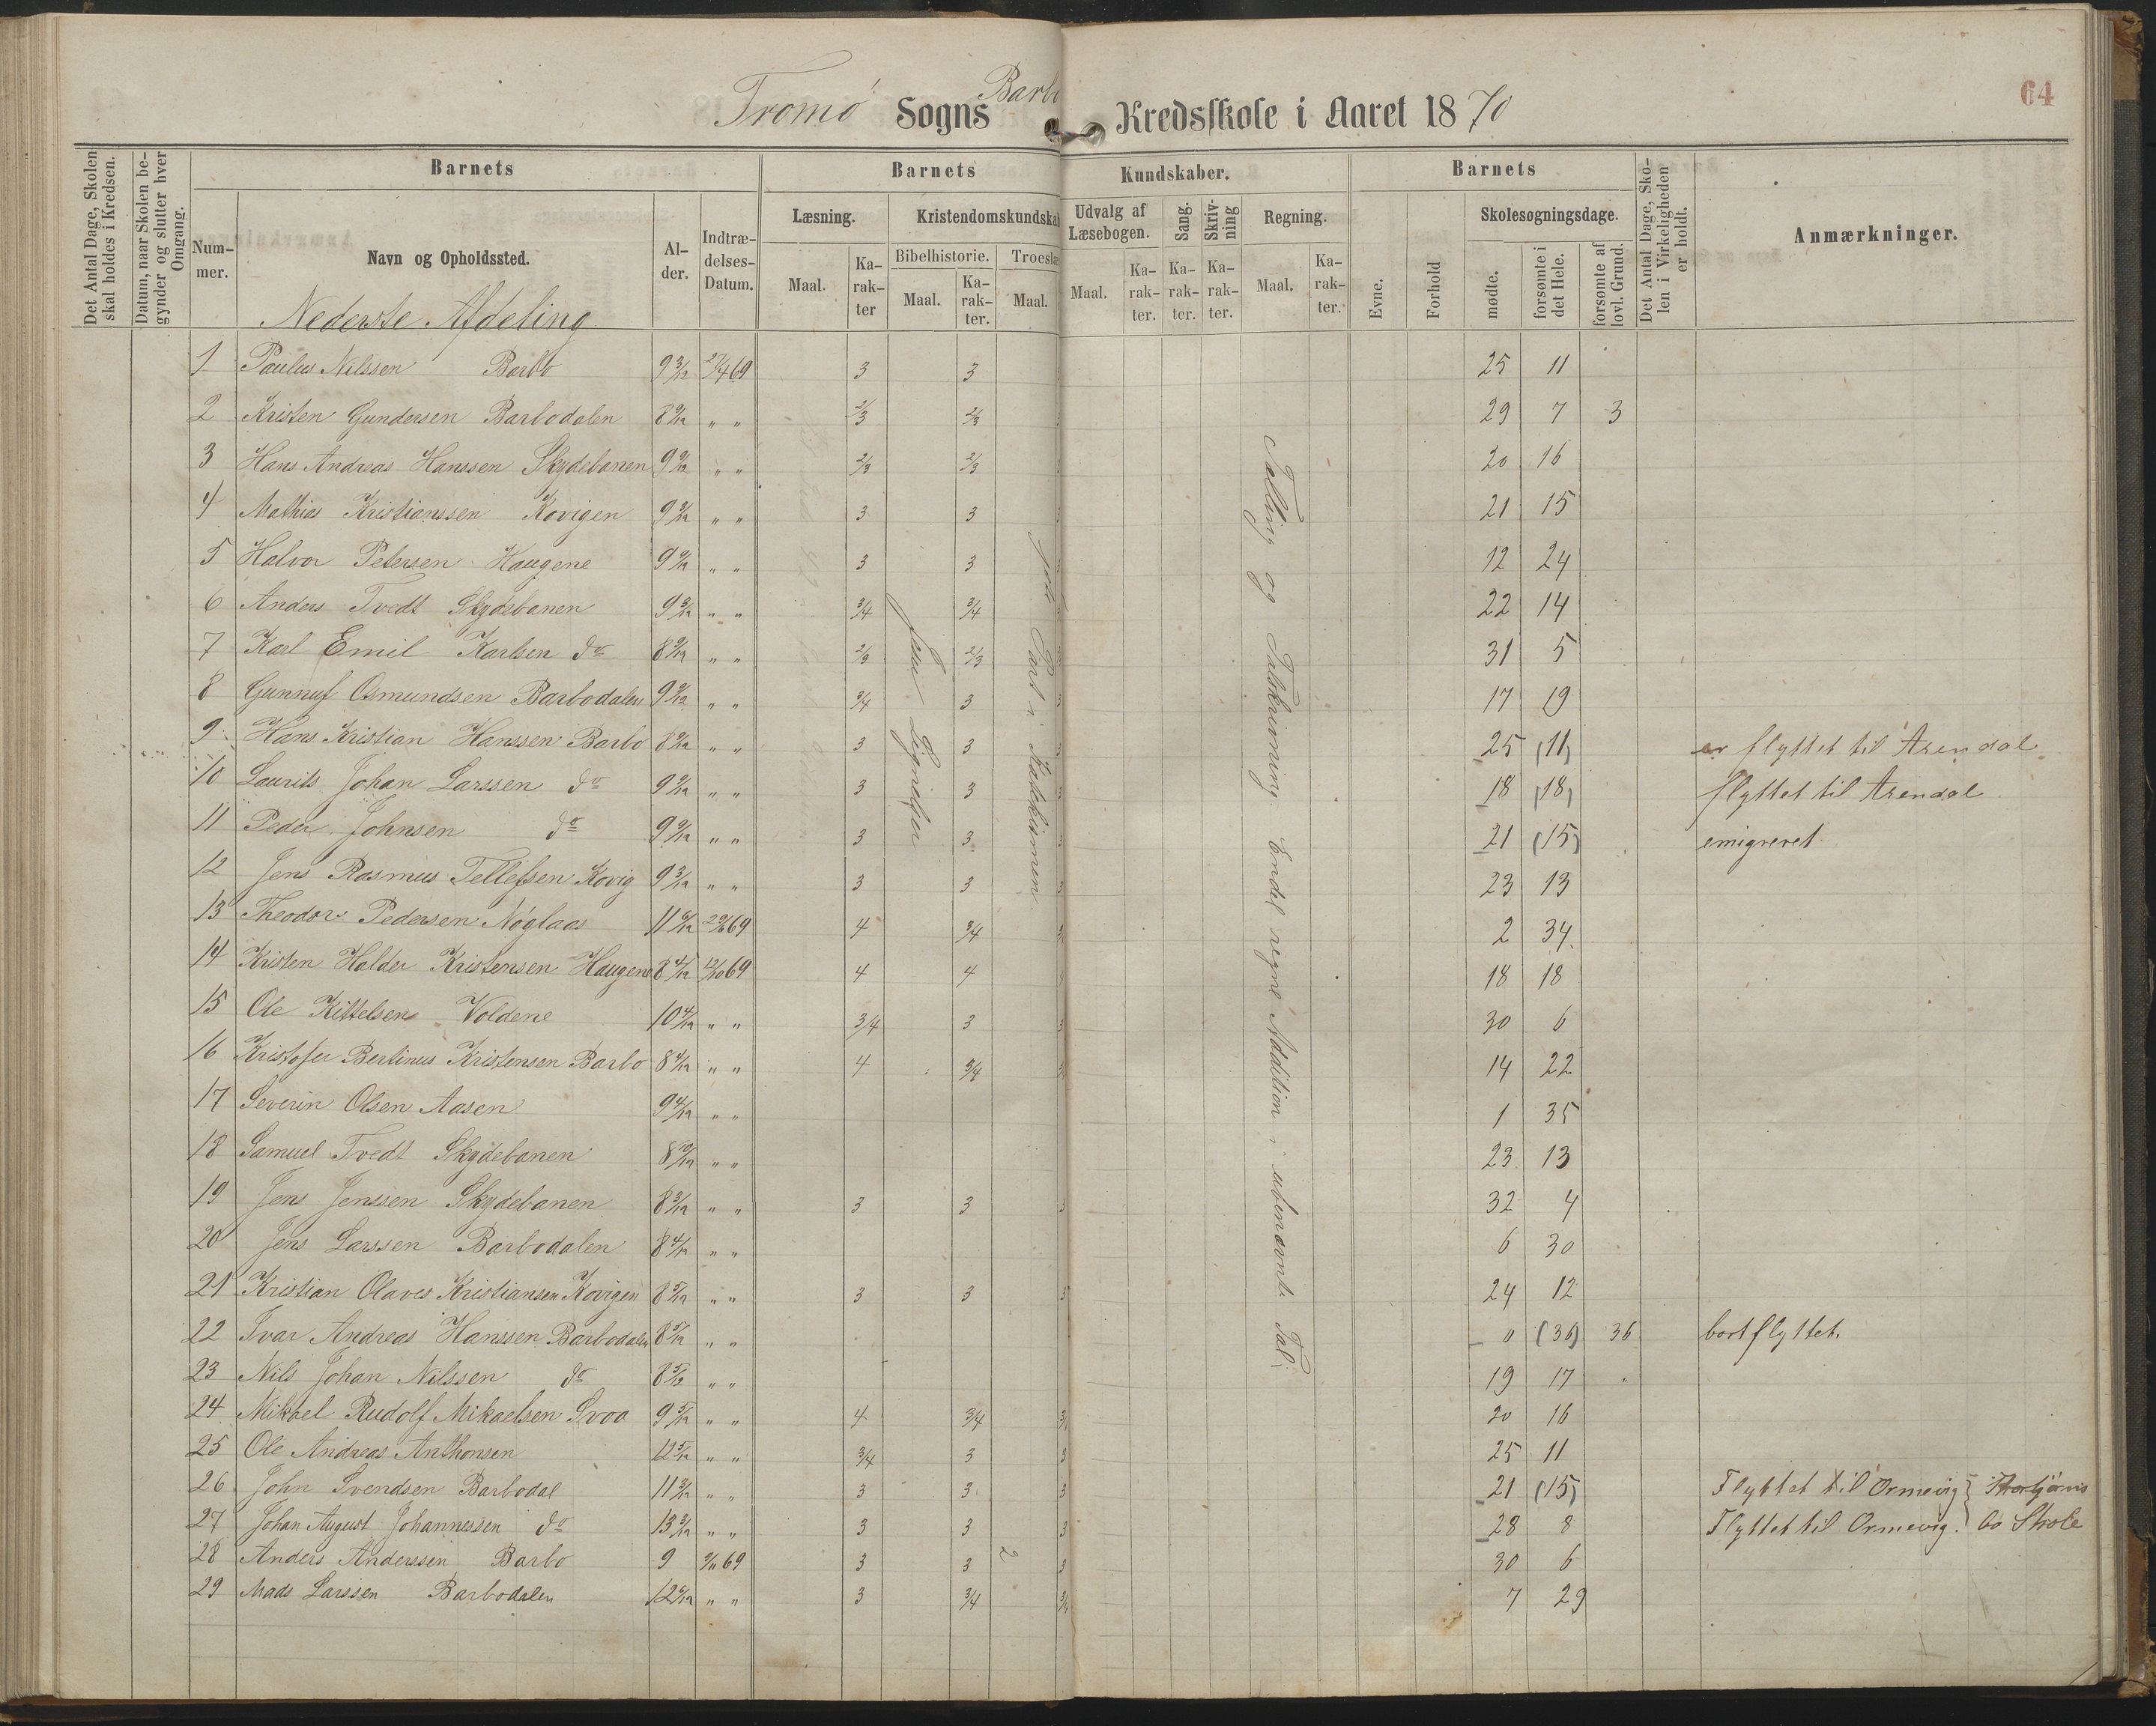 64
Tromø Sogns Barbo Kredsskole i Aaret 1870
Det Antal Dage, Skolen skal holdes i Kredsen.
Datum, naar Skolen begynder og slutter hver Omgang.
Barnets
Nummer.
Navn og Opholdssted.
Alder.
Indtrædelses-Datum.
Barnets Kundskaber.
Læsning.
Maal.
Karakter
Kristendomskundskab
Bibelhistorie.
Maal.
Karakter.
Troeslæ
Maal.
Udvalg af Læsebogen.
Maal.
Karakter.
Sang.
Karakter.
Skrivning
Karakter.
Regning.
Maal.
Karakter.
Barnets
Evne.
Forhold
Skolesøgningsdage.
mødte.
forsømte i det Hele.
forsømte af lovl. Grund.
Det Antal Dage, Skolen i Virkeligheden er holdt.
Anmærkninger.
Nederste Afdeling
1 Paulus Nilssen Barbo 9 3/12 27/4 69 3 3 25 11
2 Kristen Gundersen Barbodalen 8 9/12 " " 2/3 2/3 29 7 3
3 Hans Andreas Hanssen Skydebanen 9 9/12 " " 2/3 2/3 20 16
4 Mathias Kristianssen Kovigen 9 3/12 " " 3 3 21 15
5 Halvor Petersen Haugene 9 9/12 " " 3 3 12 24
6 Anders Tvedt Skydebanen 9 3/12 " " 3/4 3/4 22 14
7 Karl Emil Karlsen do 8 9/12 " " 2/3 2/3 31 5
8 Gunnuf Osmundsen Barbodalen 9 9/12 " " 3/4 3 17 19
9 Hans Kristian Hanssen Barbo 8 9/12 " " 3 3 25 (11) er flyttet til Arendal
10 Laurits Johan Larssen do 9 9/12 " " 3 3 18 (18) flyttet til Arendal
11 Peder Johnsen do 9 9/12 " " 3 3 21 (15) emigreret
12 Jens Rasmus Tellefsen Kovig 9 3/12 " " 3 3 23 13
13 Theodor Pedersen Nøglaas 11 6/12 69 4 3/4 2 34
14 Kristen Halder Kristensen Haugene 8 4/12 12/10 69 4 4 18 18
15 Ole Kittelsen Voldene 10 4/12 " " 3/4 3 30 6
16 Kristofer Bertinus Kristensen Barbo 8 4/12 " " 4 3/4 14 22
17 Severin Olsen Aasen 9 4/12 " " 1 35
18 Samuel Tvedt Skydebanen 8 10/12 " " 23 13
19 Jens Jenssen Skydebanen 8 3/12 " " 3 3 32 4
20 Jens Larssen Barbodalen 8 4/12 " " 6 30
21 Kristian Olaves Kristiansen Kovigen 8 5/12 " " 3 3 24 12
22 Ivar Andreas Hanssen Barbodalen 8 5/12 " " 0 (36) 36 bortflyttet.
23 Nils Johan Nilssen do 8 5/12 " " 19 17
24 Mikael Rudolf Mikaelsen Svoa 9 5/12 " " 4 3/4 20 16
25 Ole Andreas Anthonsen 12 5/12 " " 3/4 3 25 11
26 John Svendsen Barbodal 11 3/12 " " 3 3 21 (15) Flyttet til Ormevig
27 Johan August Johannessen do 13 3/12 " " 3 3 28 8 Flyttet til Ormevig. Skole
28 Anders Anderssen Barbo 9 69 3 3 2 3 30 6
29 Mads Larssen Barbodalen 12 6/12 " " 3 3/4 7 29
Jesu Lignelser
Part i Katekismen
Tælling og Talskrivning Endel regne Addition i ubenævnte Tal.